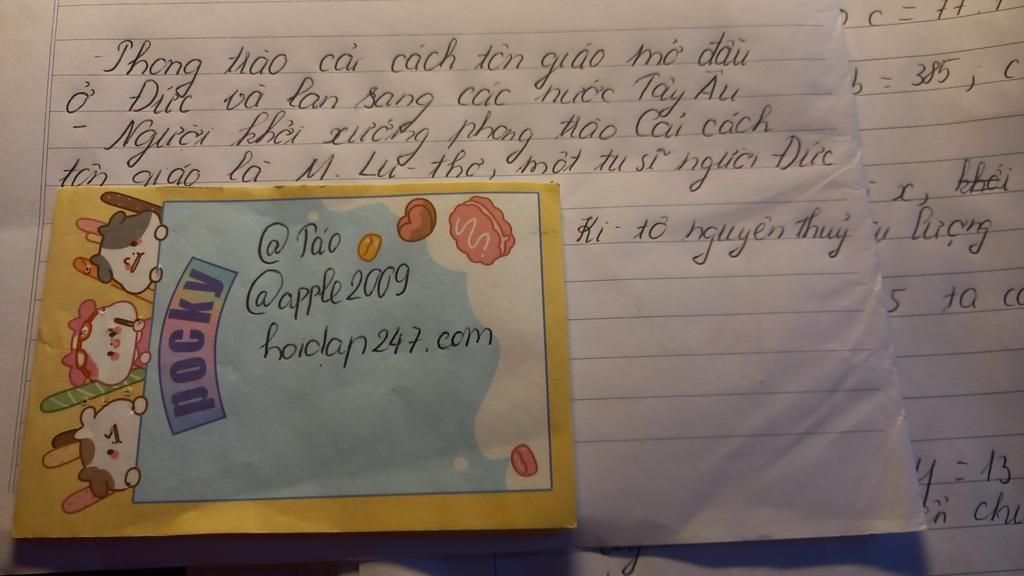 - Phong trào cải cách tôn giáo mở đầu
ở Đức và lan sang các nước Tây Âu
- Người khởi xướng phong trào Cải cách
tôn giáo là M. Lu-thơ, một tu sĩ người Đức
Ki-tô nguyên thuỷ
@ Táo
@apple2009
hoidap247.com
pocky
c = 77
b = 385 ; c
x,
lượng
5 ta có
y = 13